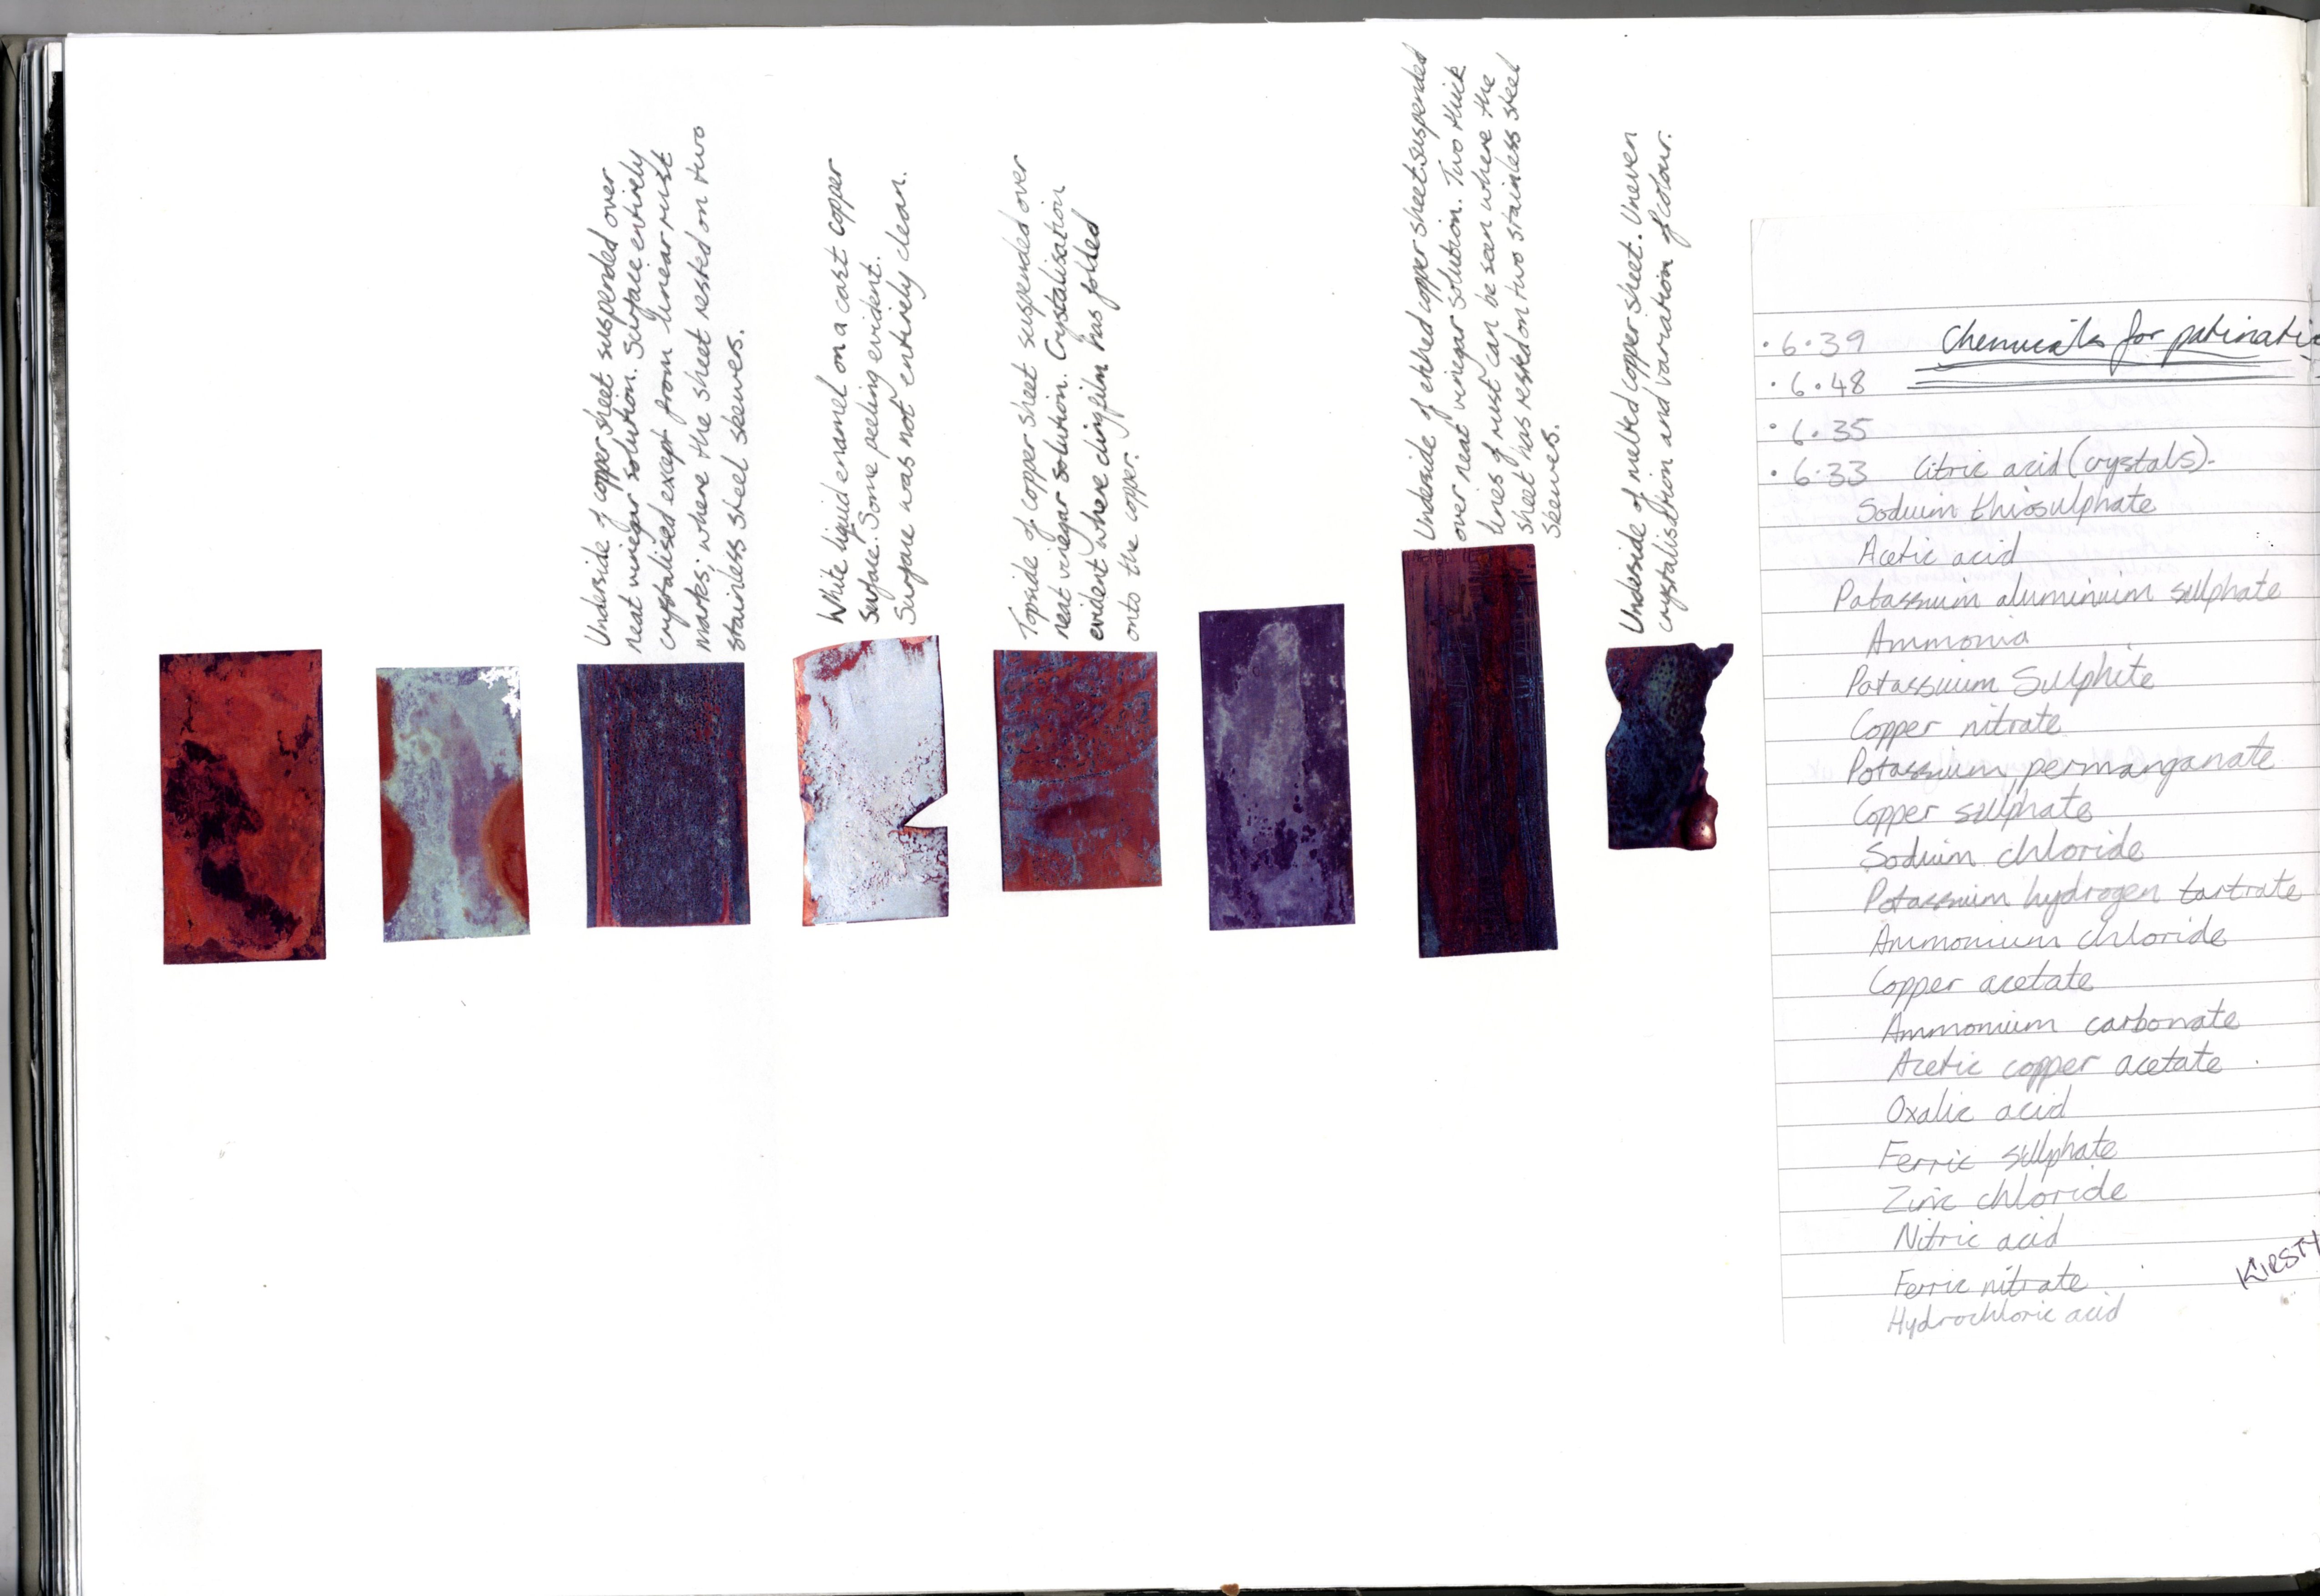 Underside of copper sheet suspended over
neat vinegar solution. Surface entirely
crystalised except from linear rust
marks; where the sheet rested on two
stainless steel skewers.
White liquid enamel on a cast copper
surface. Some peeling evident.
Surface was not entirely clean.
Topside of copper sheet suspended over
neat vinegar solution. Crystalisation
evident where cling film has folded
onto the copper.
Underside of etched copper sheet suspended
over neat vinegar solution. Two thick
lines of rust can be seen where the
sheet was rested on two stainless steel
skewers.
Underside of melted copper sheet. Uneven
crystalisation and variation of colour.
· 6.39 Chemicals for patinati
· 6.48
· 6.35
· 6.33 Citric acid (crystals).
Sodium thiosulphate
Acetic acid
Potassium aluminium sulphate
Ammonia
Potassium Sulphite
Copper nitrate
Potassium permanganate
Copper sulphate
Sodium chloride
Potassium hydrogen tartrate
Ammonium chloride
Copper acetate
Ammonium carbonate
Acetic copper acetate .
Oxalic acid
Ferric sulphate
Zinc chloride
Nitric acid
KIRSTY
Ferric nitrate
Hydrochloric acid